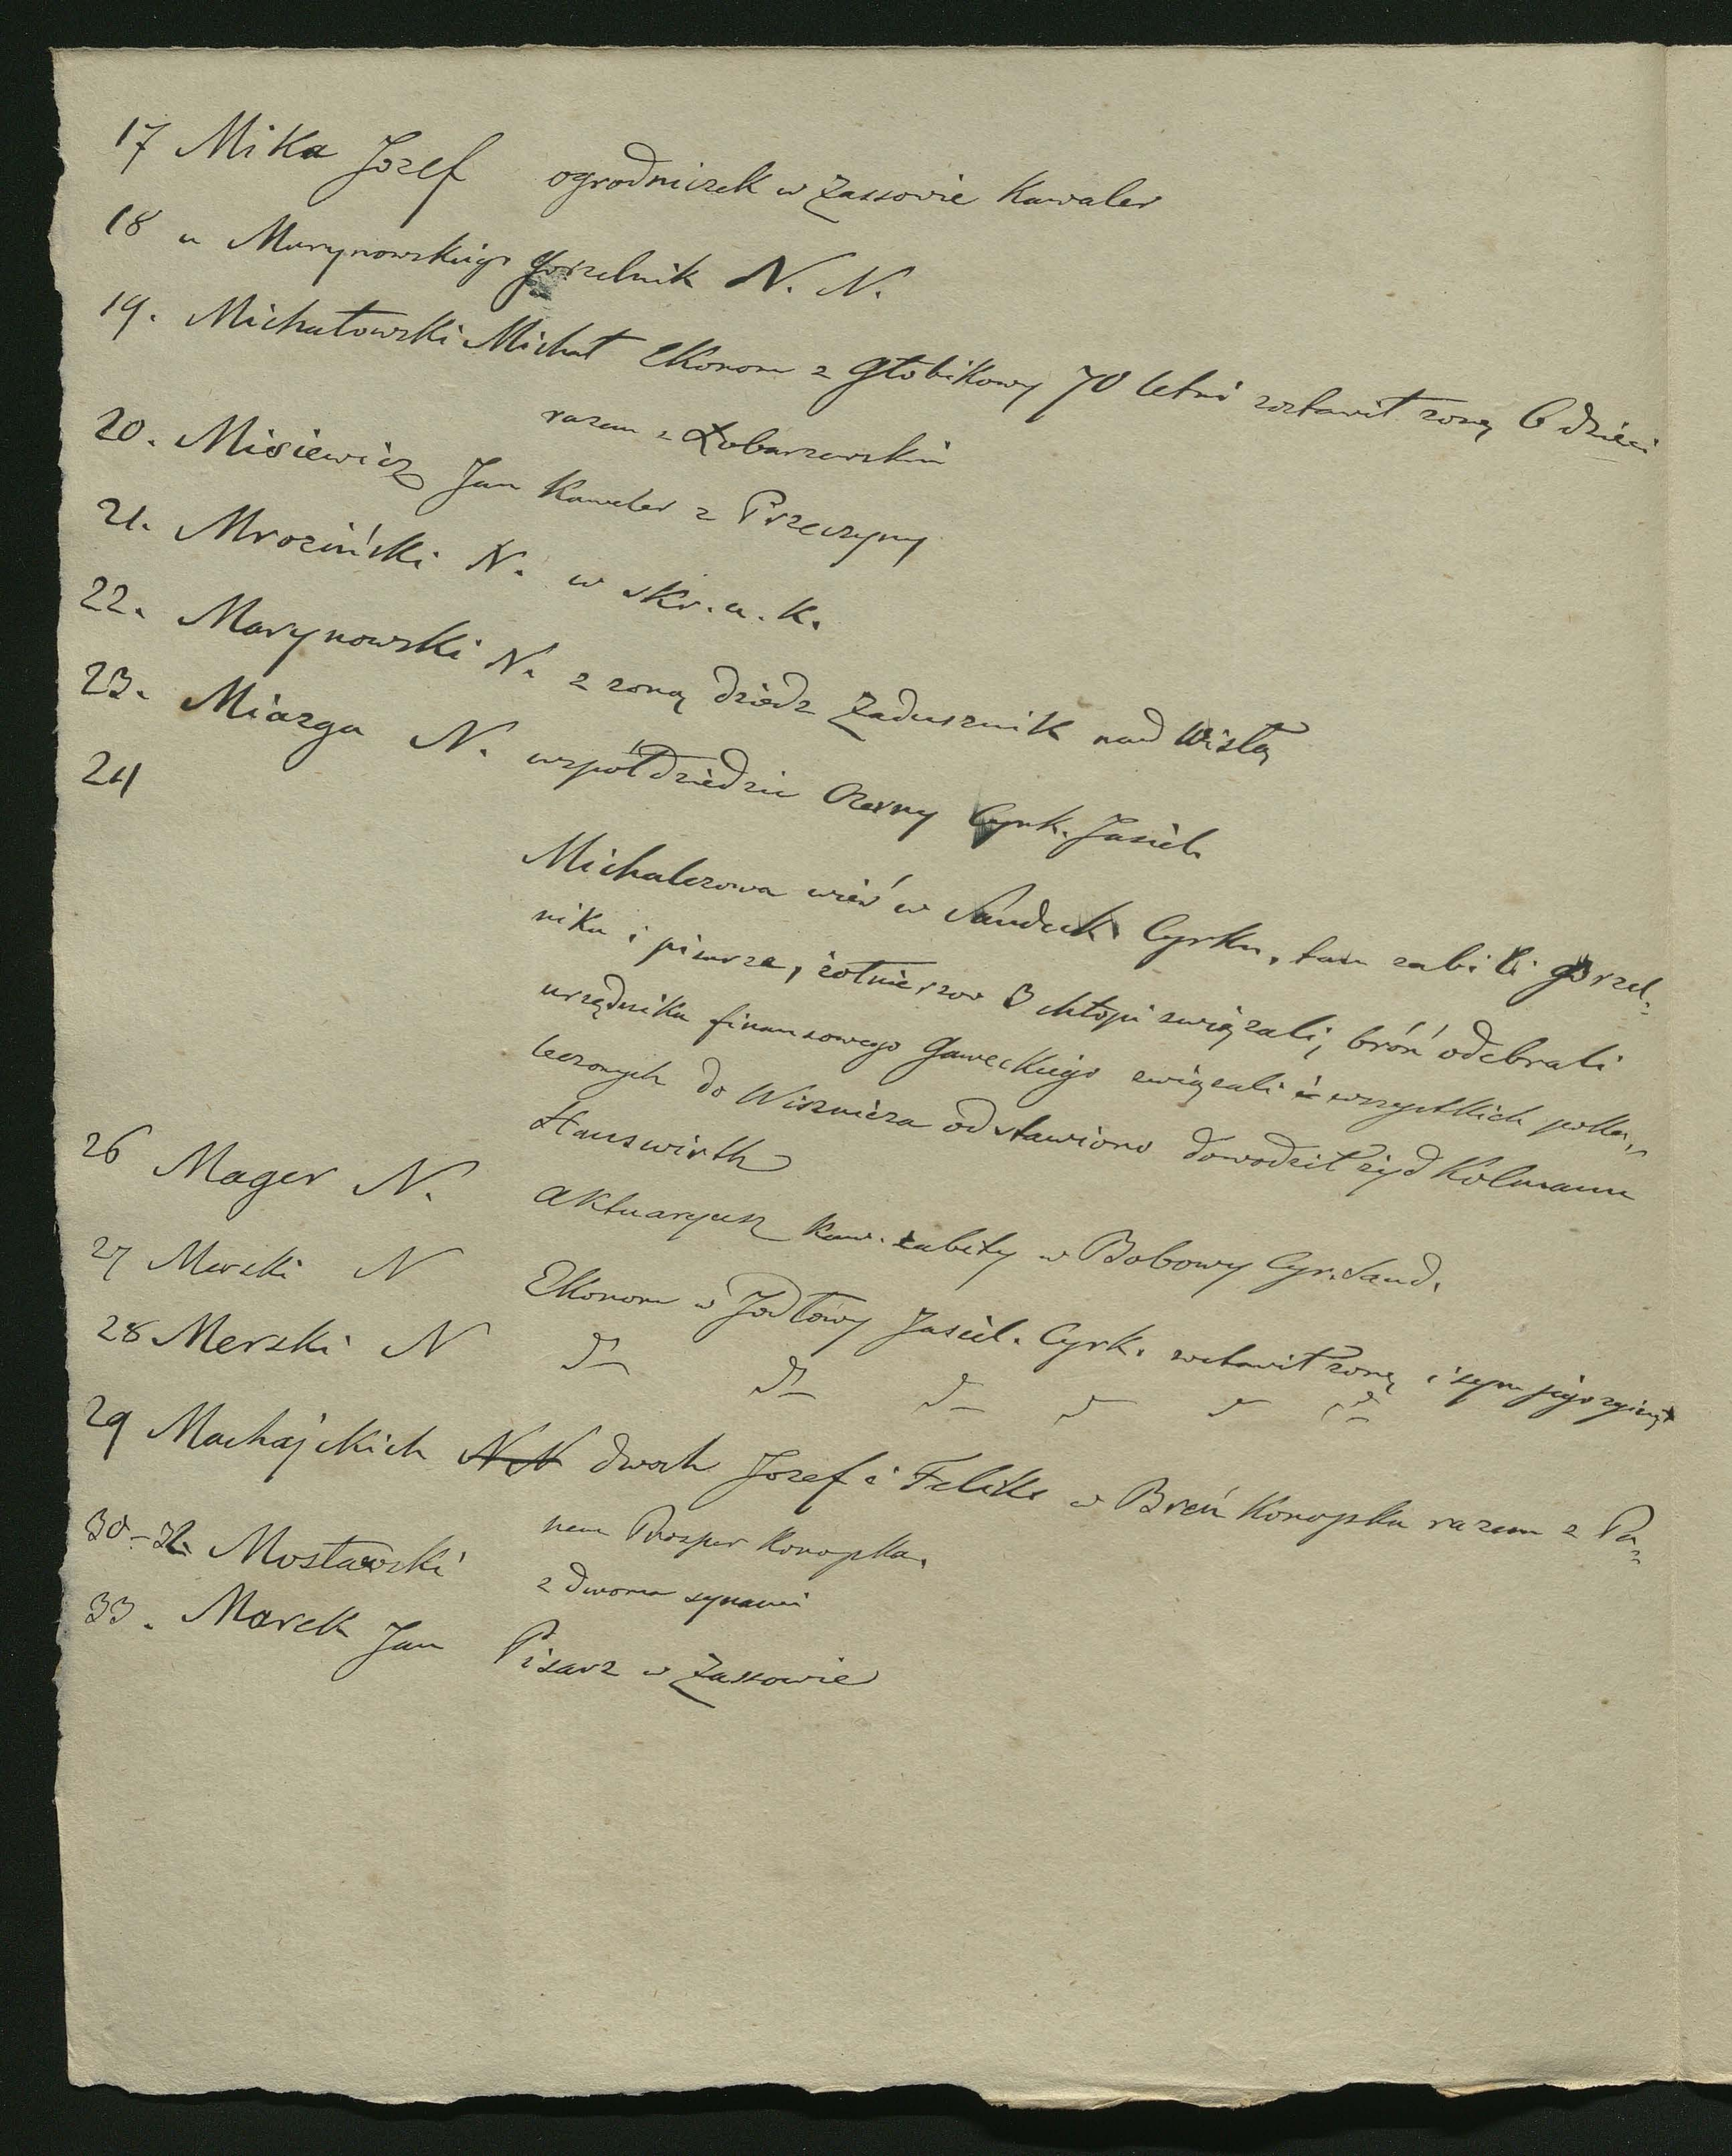 17 Mika Jozef ogrodniczek w Zassowie Kawaler
18 u Marynowskiego Gorzelnik N. N.
19. Michałowski Michał Ekonom z Głobikowy 70 letni zostawił zonę 6 dzieci
razem z Łobarzewskim
20. Misiewicz Jan Kawaler z Przeczycy
21. Mroziński N. w skr. a. K.
22. Marynowski N. z zoną dziedz Zadusznik nad Wisłą
23. Miazga N. wspołdziedzic Czerny Cyrk. Jasiel.
24
Michalczowa wieś w Sandeck Cyrku, tam zabili gorzel-
nika i pisarza, żołnierzow 3 chłopi związali, broń odebrali
urzędnika finansowego Gaweckiego związali i wszystkich poka-
leczonych do Wisznicza odstawiono dowodził żyd Kolmann
Hauswirth
26 Mager N. aktuaryusz Kaw. zabity w Bobowy Cyr. Sand.
27 Merski N Ekonom w Jodłowy Jasiel. Cyrk. zostawił zonę i syn jego zginął
28 Merski N
29 Machajskich N N dwoch Jozef i Feliks w Breń Konopka razem z Pa-
nem Prosper Konopka.
30-32. Mosławski z dwoma synami
33. Marek Jan Pisarz w Zassowie